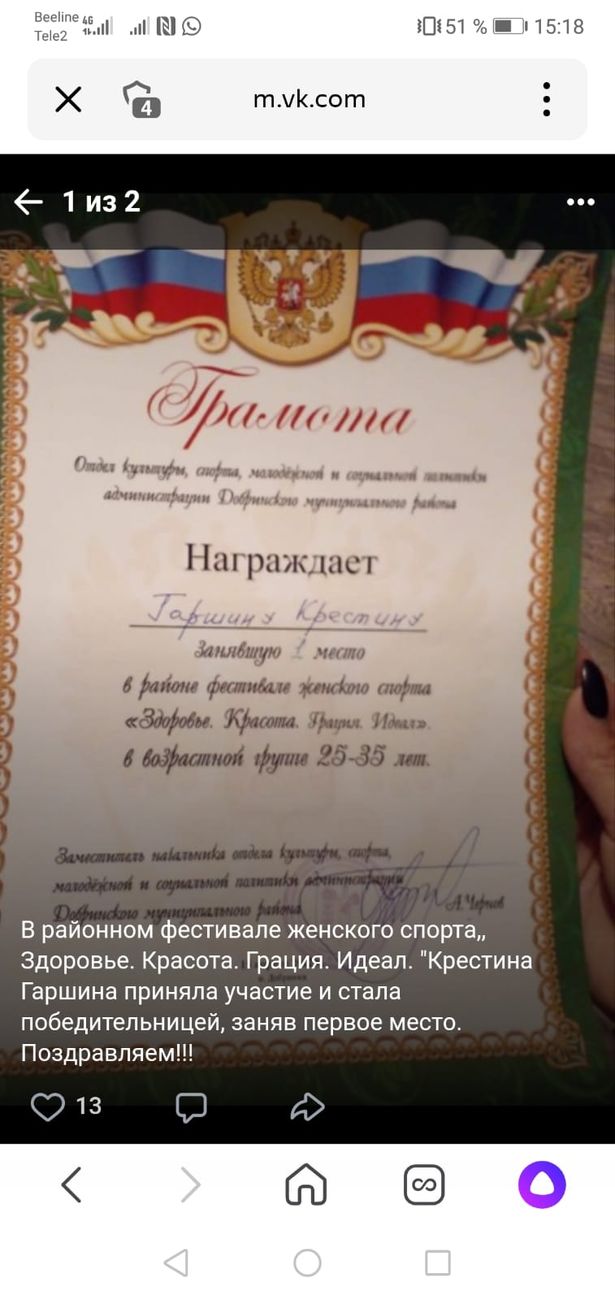 Beeline 4G
Tele2
51 % 15:18
4
m.vk.com
1 из 2
Грамота
Отдел культуры, спорта, молодёжной и социальной политики
администрации Добринского муниципального района
Награждает
Гаршину Крестину
Занявшую 1 место
в районе фестивале женского спорта
«Здоровье. Красота. Грация. Идеал».
в возрастной группе 25-35 лет.
Заместитель начальника отдела культуры, спорта,
молодёжной и социальной политики администрации
Добринского муниципального района
А.Чернов
В районном фестивале женского спорта,,
Здоровье. Красота. Грация. Идеал. "Крестина
Гаршина приняла участие и стала
победительницей, заняв первое место.
Поздравляем!!!
13